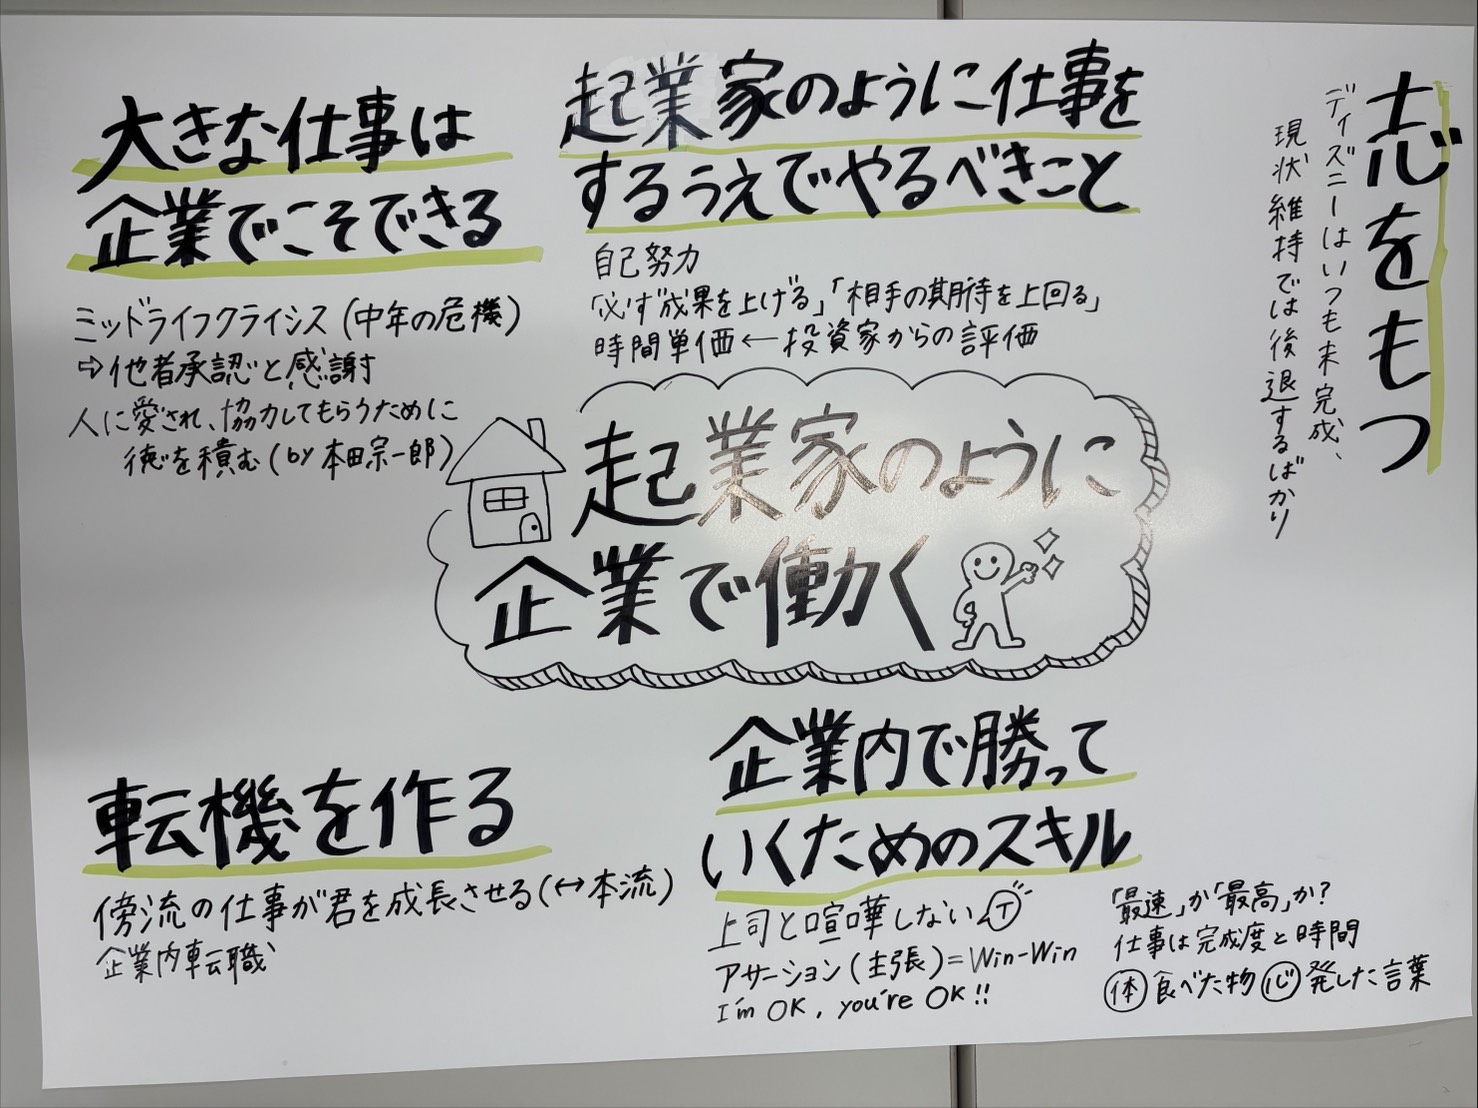 起業家のように
企業で働く
大きな仕事は
企業でこそできる
ミッドライフクライシス(中年の危機)
⇨他者承認と感謝
人に愛され、協力してもらうために
徳を積む(by 本田宗一郎)
起業家のように仕事を
するうえでやるべきこと
自己努力
「必ず成果を上げる」「相手の期待を上回る」
時間単価←投資家からの評価
志をもつ
ディズニーはいつも未完成、
現状維持では後退するばかり
転機を作る
傍流の仕事が君を成長させる(↔本流)
企業内転職
企業内で勝って
いくためのスキル
上司と喧嘩しない
アサーション(主張)=Win-Win
I'm OK, you're OK!!
「最速」か「最高」か?
仕事は完成度と時間
体 食べた物 心 発した言葉